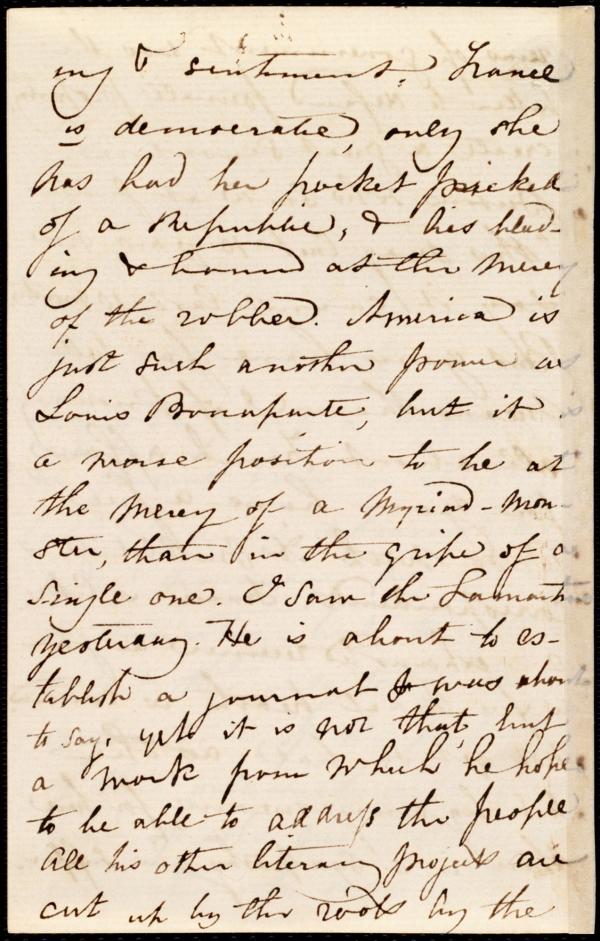 ing & sentiment. France
is democratic, only she
has had her pocket picked
of a Republic, & lies bleed-
ing & bound at the mercy
of the robber. America is
just such another power as
Louis Bonaparte, but it is
a worse position to be at
the mercy of a Myriad-mon-
ster, than in the gripe of a
single one. I saw de Lamartine
yesterday. He is about to es-
tablish a journal I was about
to say, yet it is not that, but
a work from which he hopes
to be able to address the people
All his other literary projects are
cut up by the roots by the